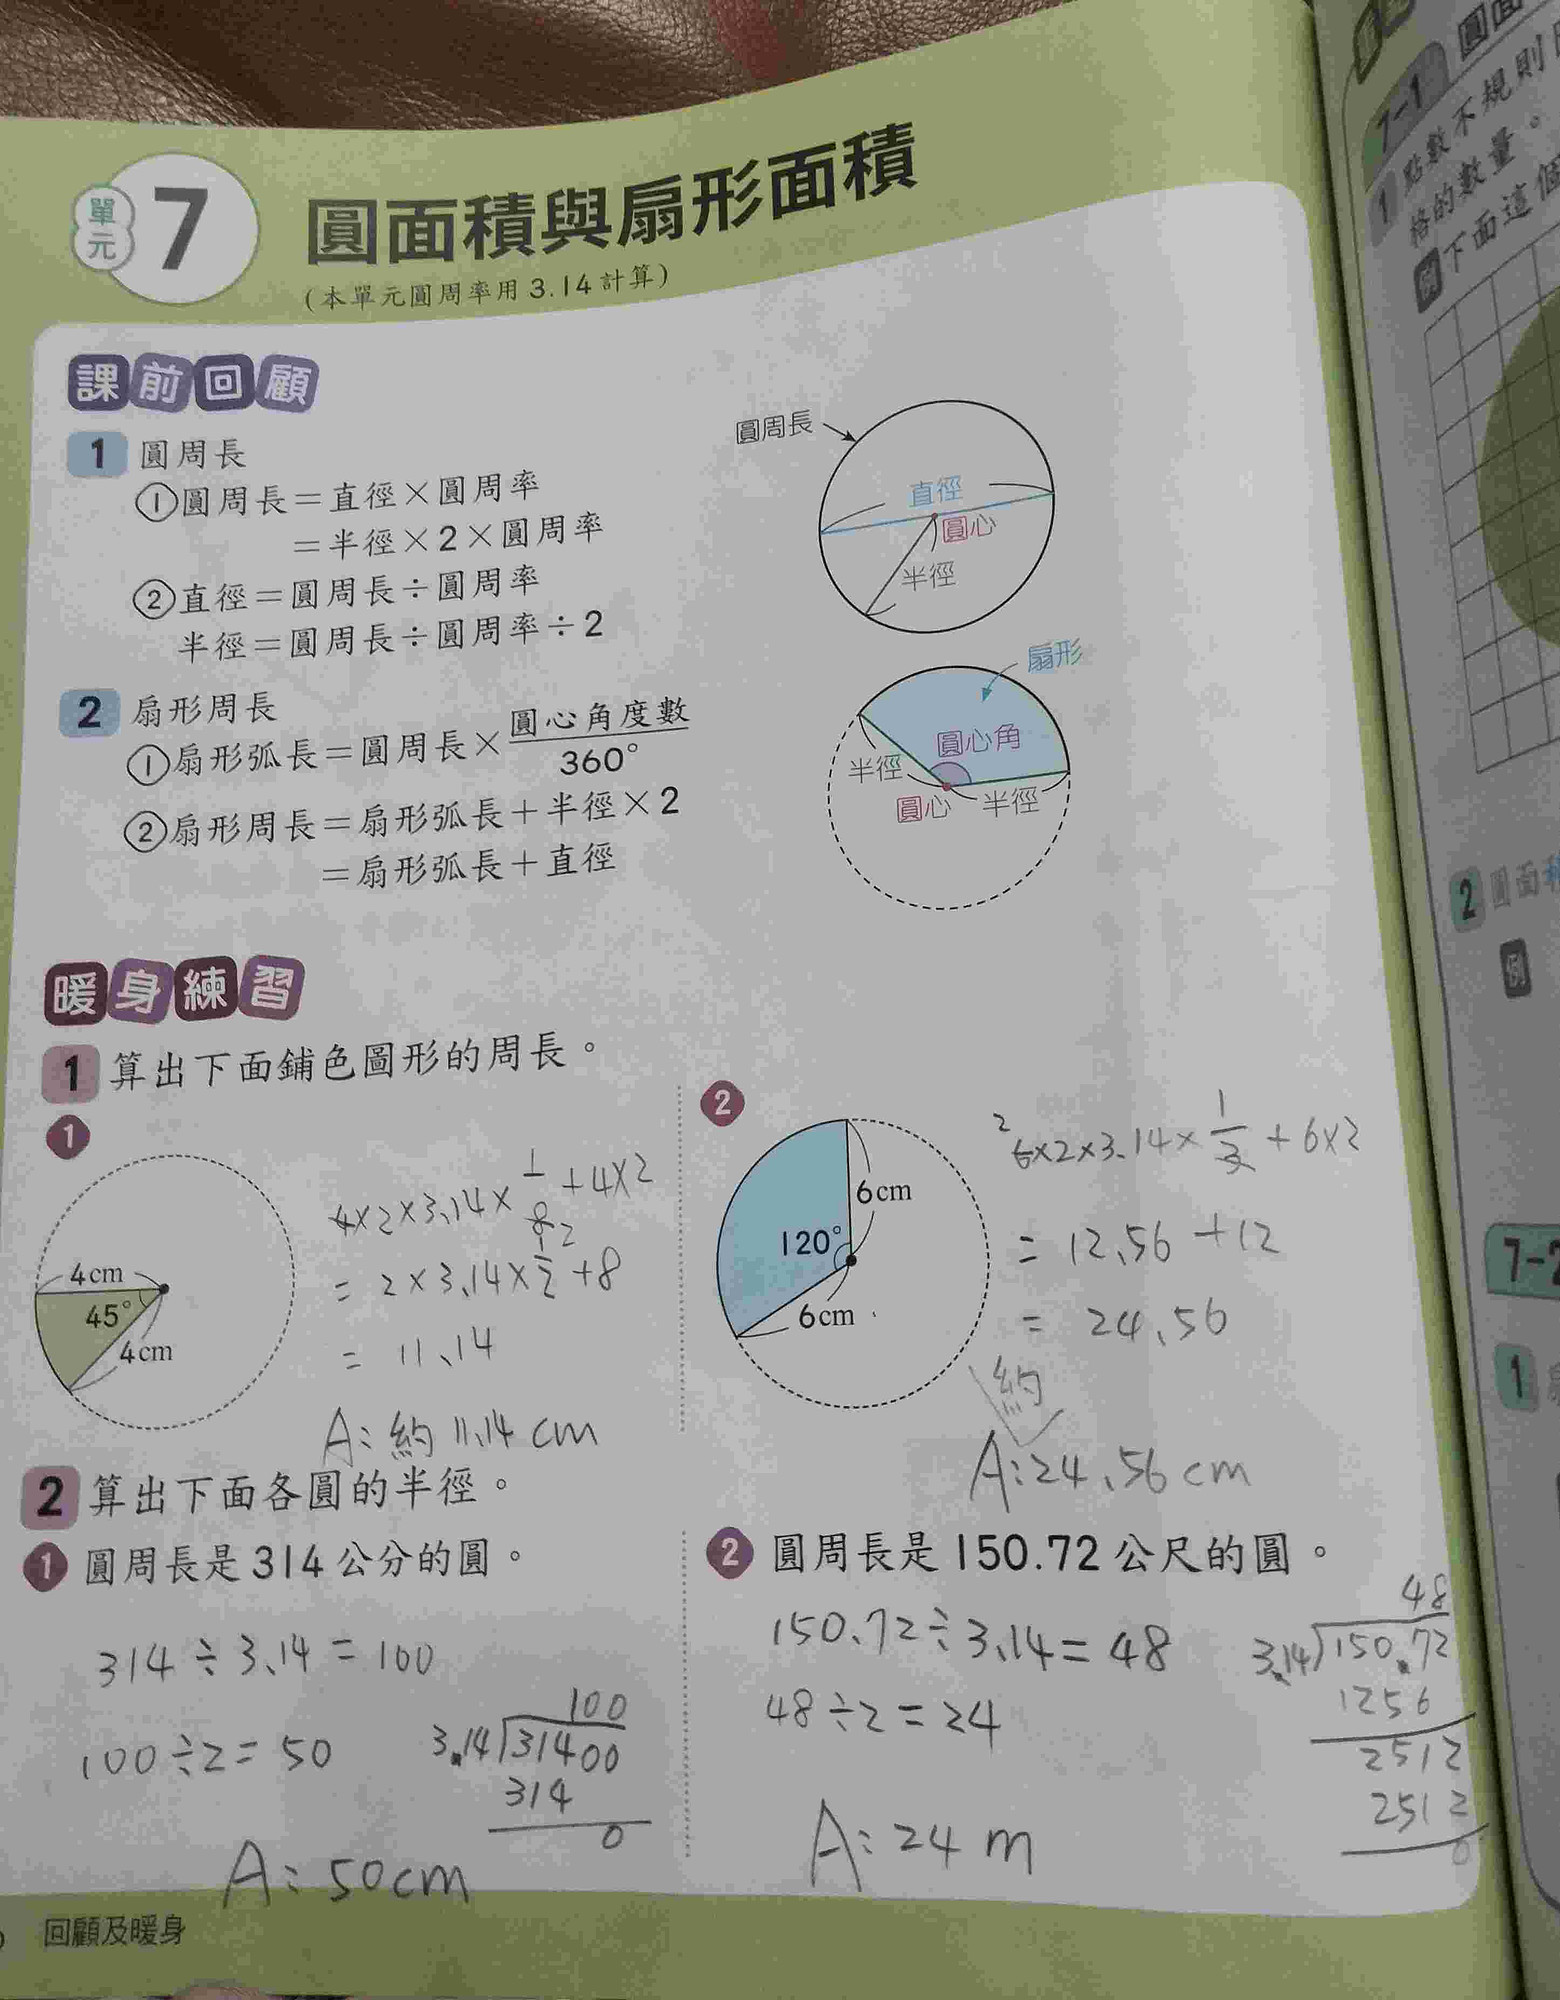 單元 7 圓面積與扇形面積
(本單元圓周率用3.14計算)
課前回顧
1 圓周長
①圓周長=直徑×圓周率
=半徑×2×圓周率
②直徑=圓周長÷圓周率
半徑=圓周長÷圓周率÷2
圓周長
直徑
圓心
半徑
2 扇形周長
①扇形弧長=圓周長×圓心角度數/360°
②扇形周長=扇形弧長+半徑×2
=扇形弧長+直徑
扇形
圓心角
半徑
圓心
半徑
暖身練習
1 算出下面鋪色圖形的周長。
1
4cm
45°
4cm
4×2×3.14×1/8+4×2
2
= 2×3.14×1/2+8
= 11.14
A:約11.14cm
2
6cm
120°
6cm
2
6×2×3.14×1/3+6×2
= 12.56+12
= 24.56
約
A:24.56cm
2 算出下面各圓的半徑。
1 圓周長是314公分的圓。
314÷3.14=100
100÷2=50
100
3.14)31400
314
0
A:50cm
2 圓周長是150.72公尺的圓。
150.72÷3.14=48
48÷2=24
48
3.14)150.72
1256
2512
2512
0
A:24m
回顧及暖身
7-1 圓面
1 點數不規則
格的數量。
例 下面這個
2 圓面積
例
7-2
1